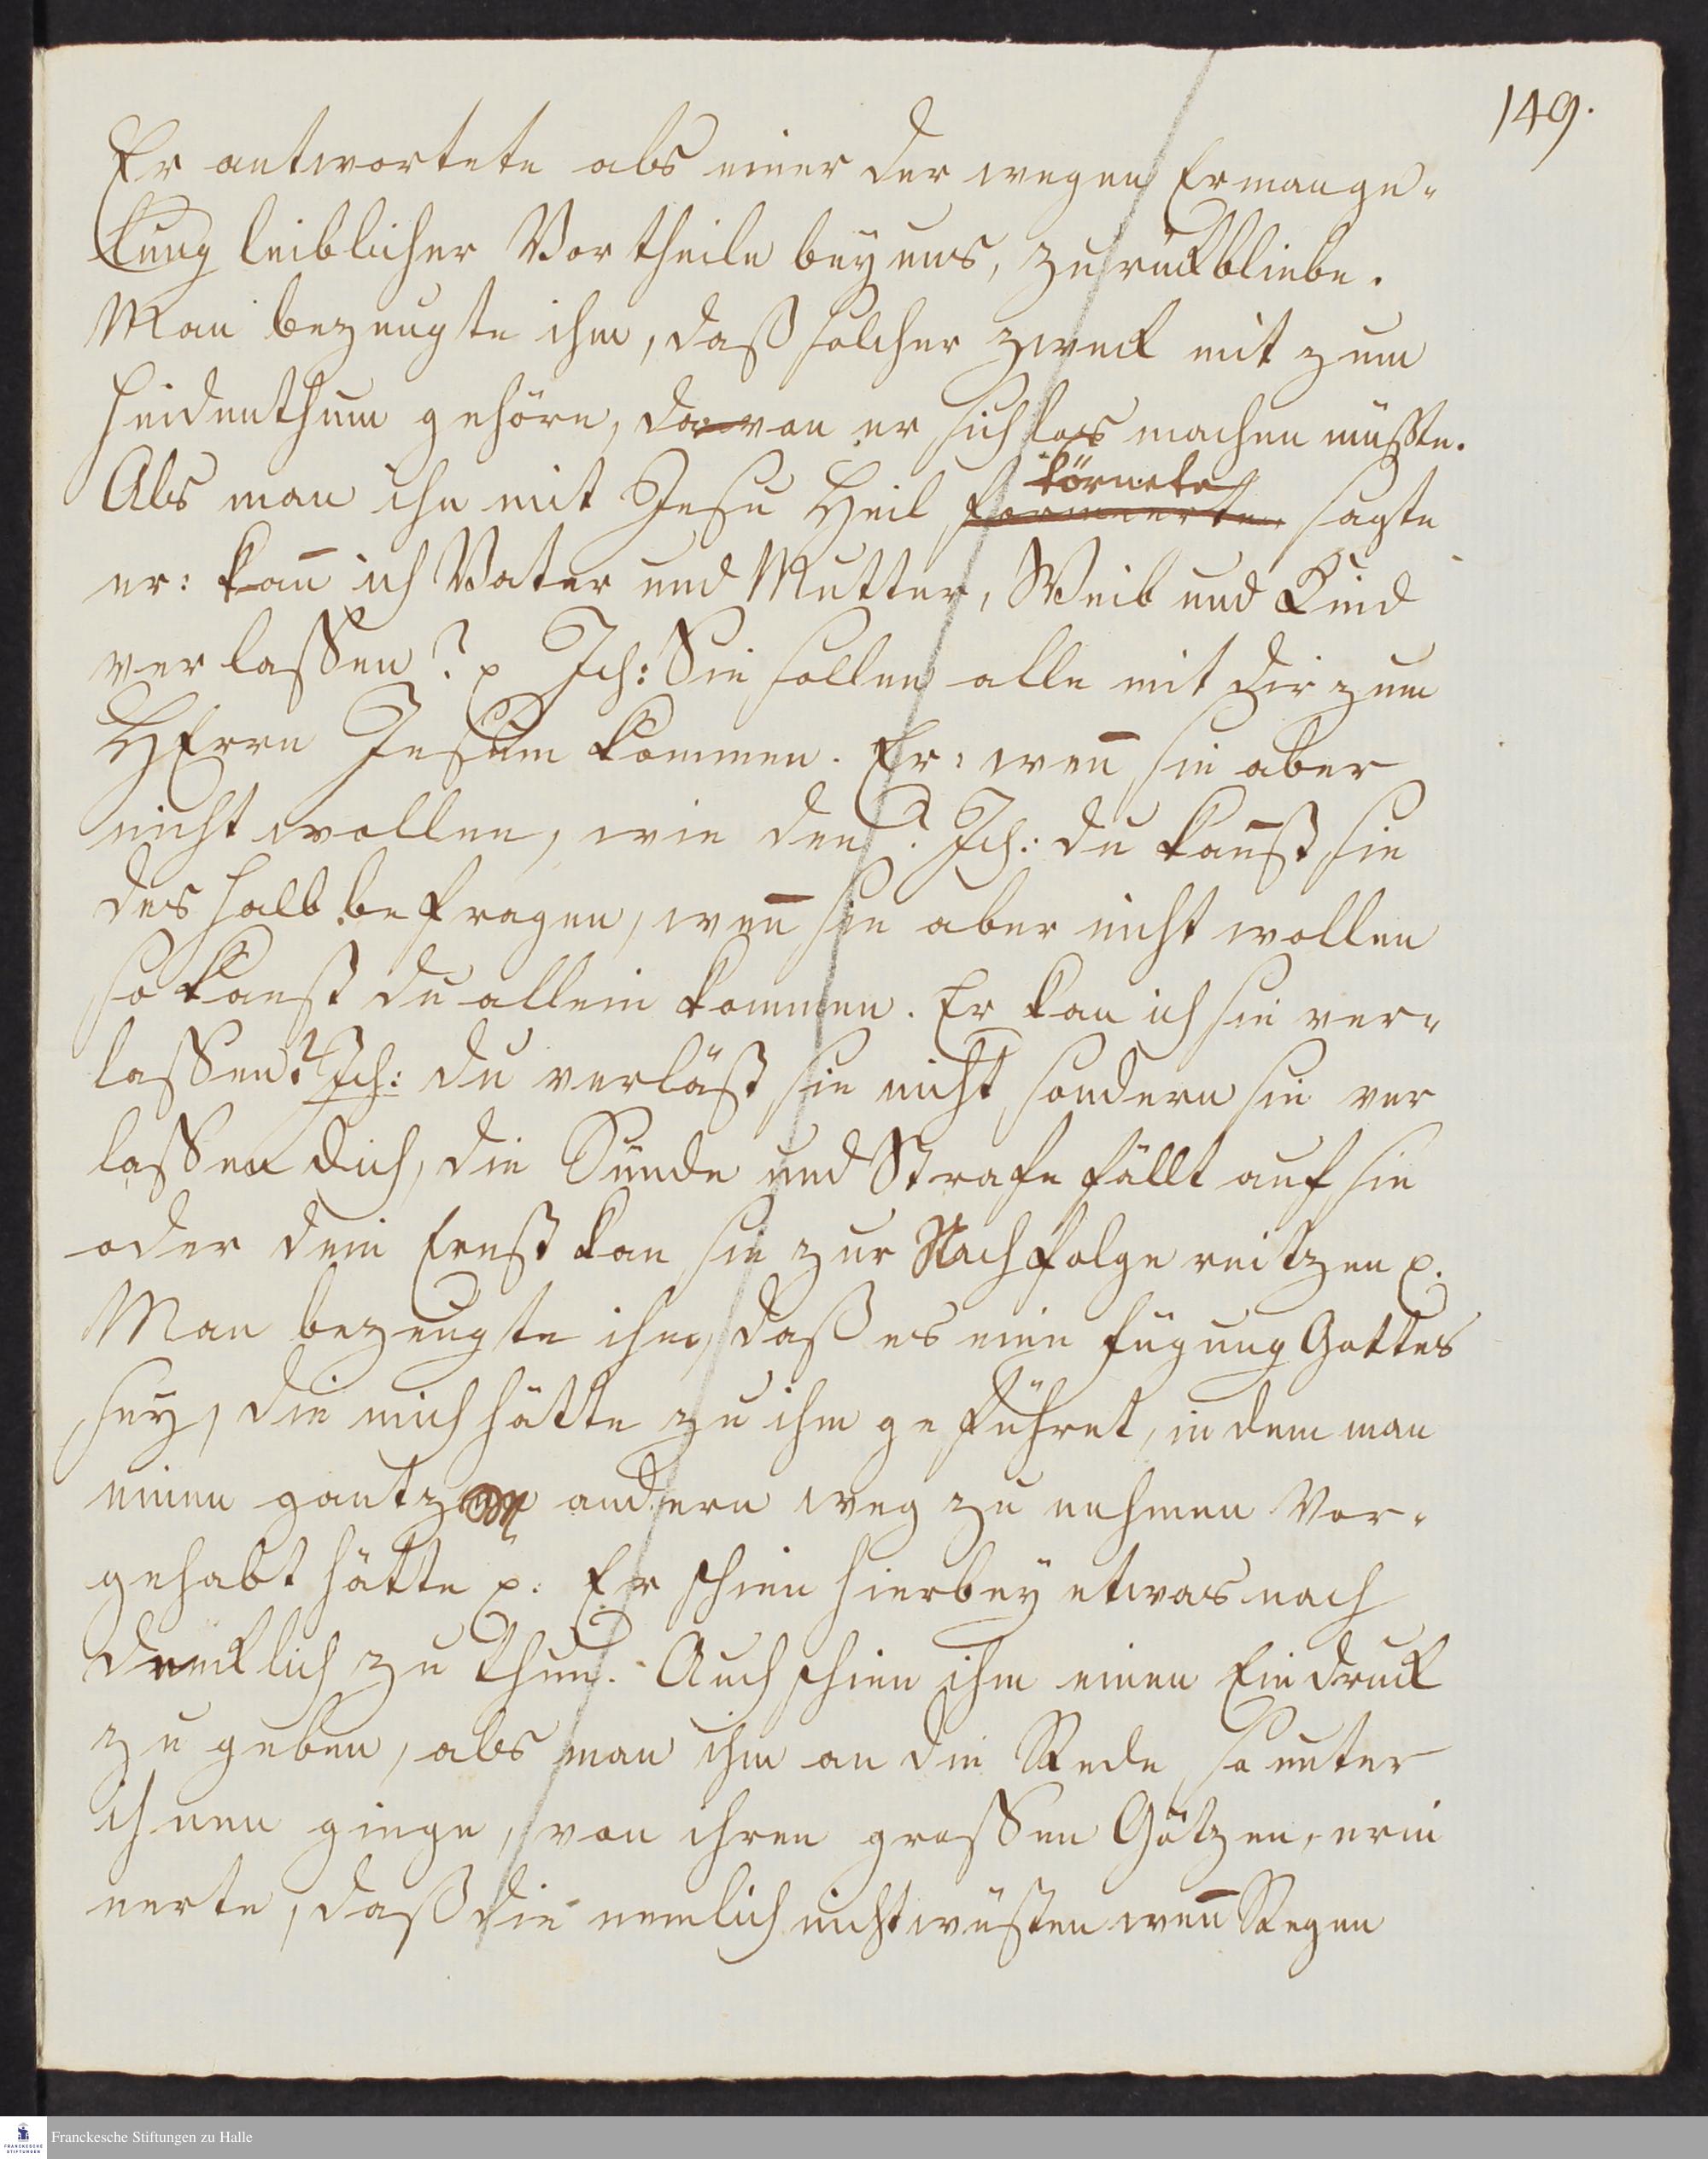 149.
Er antwortete als einer der wegen Ermange-
lung leiblicher Vortheile bey uns, zurückbliebe.
Man bezeugte ihm, daß solcher Zweck mit zum
Heidenthum gehöre, davon er sich los machen müßte.
körnete
Als man ihn mit Jesu Heil sagte
er: kan̄ ich Vater und Mutter, Weib und Kind
verlaßen? p Ich: Sie sollen alle mit dir zum
HErrn Jesum kommen. Er: wen̄ sie aber
nicht wollen, wie den? Ich: du kan̄st sie
deshalb befragen, wen̄ sie aber nicht wollen
so kanst du allein kommen. Er kan ich sie ver-
laßen? Ich: du verläst sie nicht sondern sie ver
laßen dich, die Sünde und Strafe fällt auf sie
oder dein Ernst kan sie zur Nachfolge reitzen p.
Man bezeugte ihm, daß es eine fügung Gottes
sey, die mich hätte zu ihm geführet, in dem man
einen gantz andern weg zu nehmen Vor-
gehabt hätte p. Er schien hierbey etwas nach
drucklich zu thun. Auch schien ihm einen Eindruck
zu geben, als man ihm an die Rede so unter
ihnen ginge, von ihren großen Götzen, erin
nerte, daß die nemlich nicht wüsten wen̄ Regen
Franckesche Stiftungen zu Halle